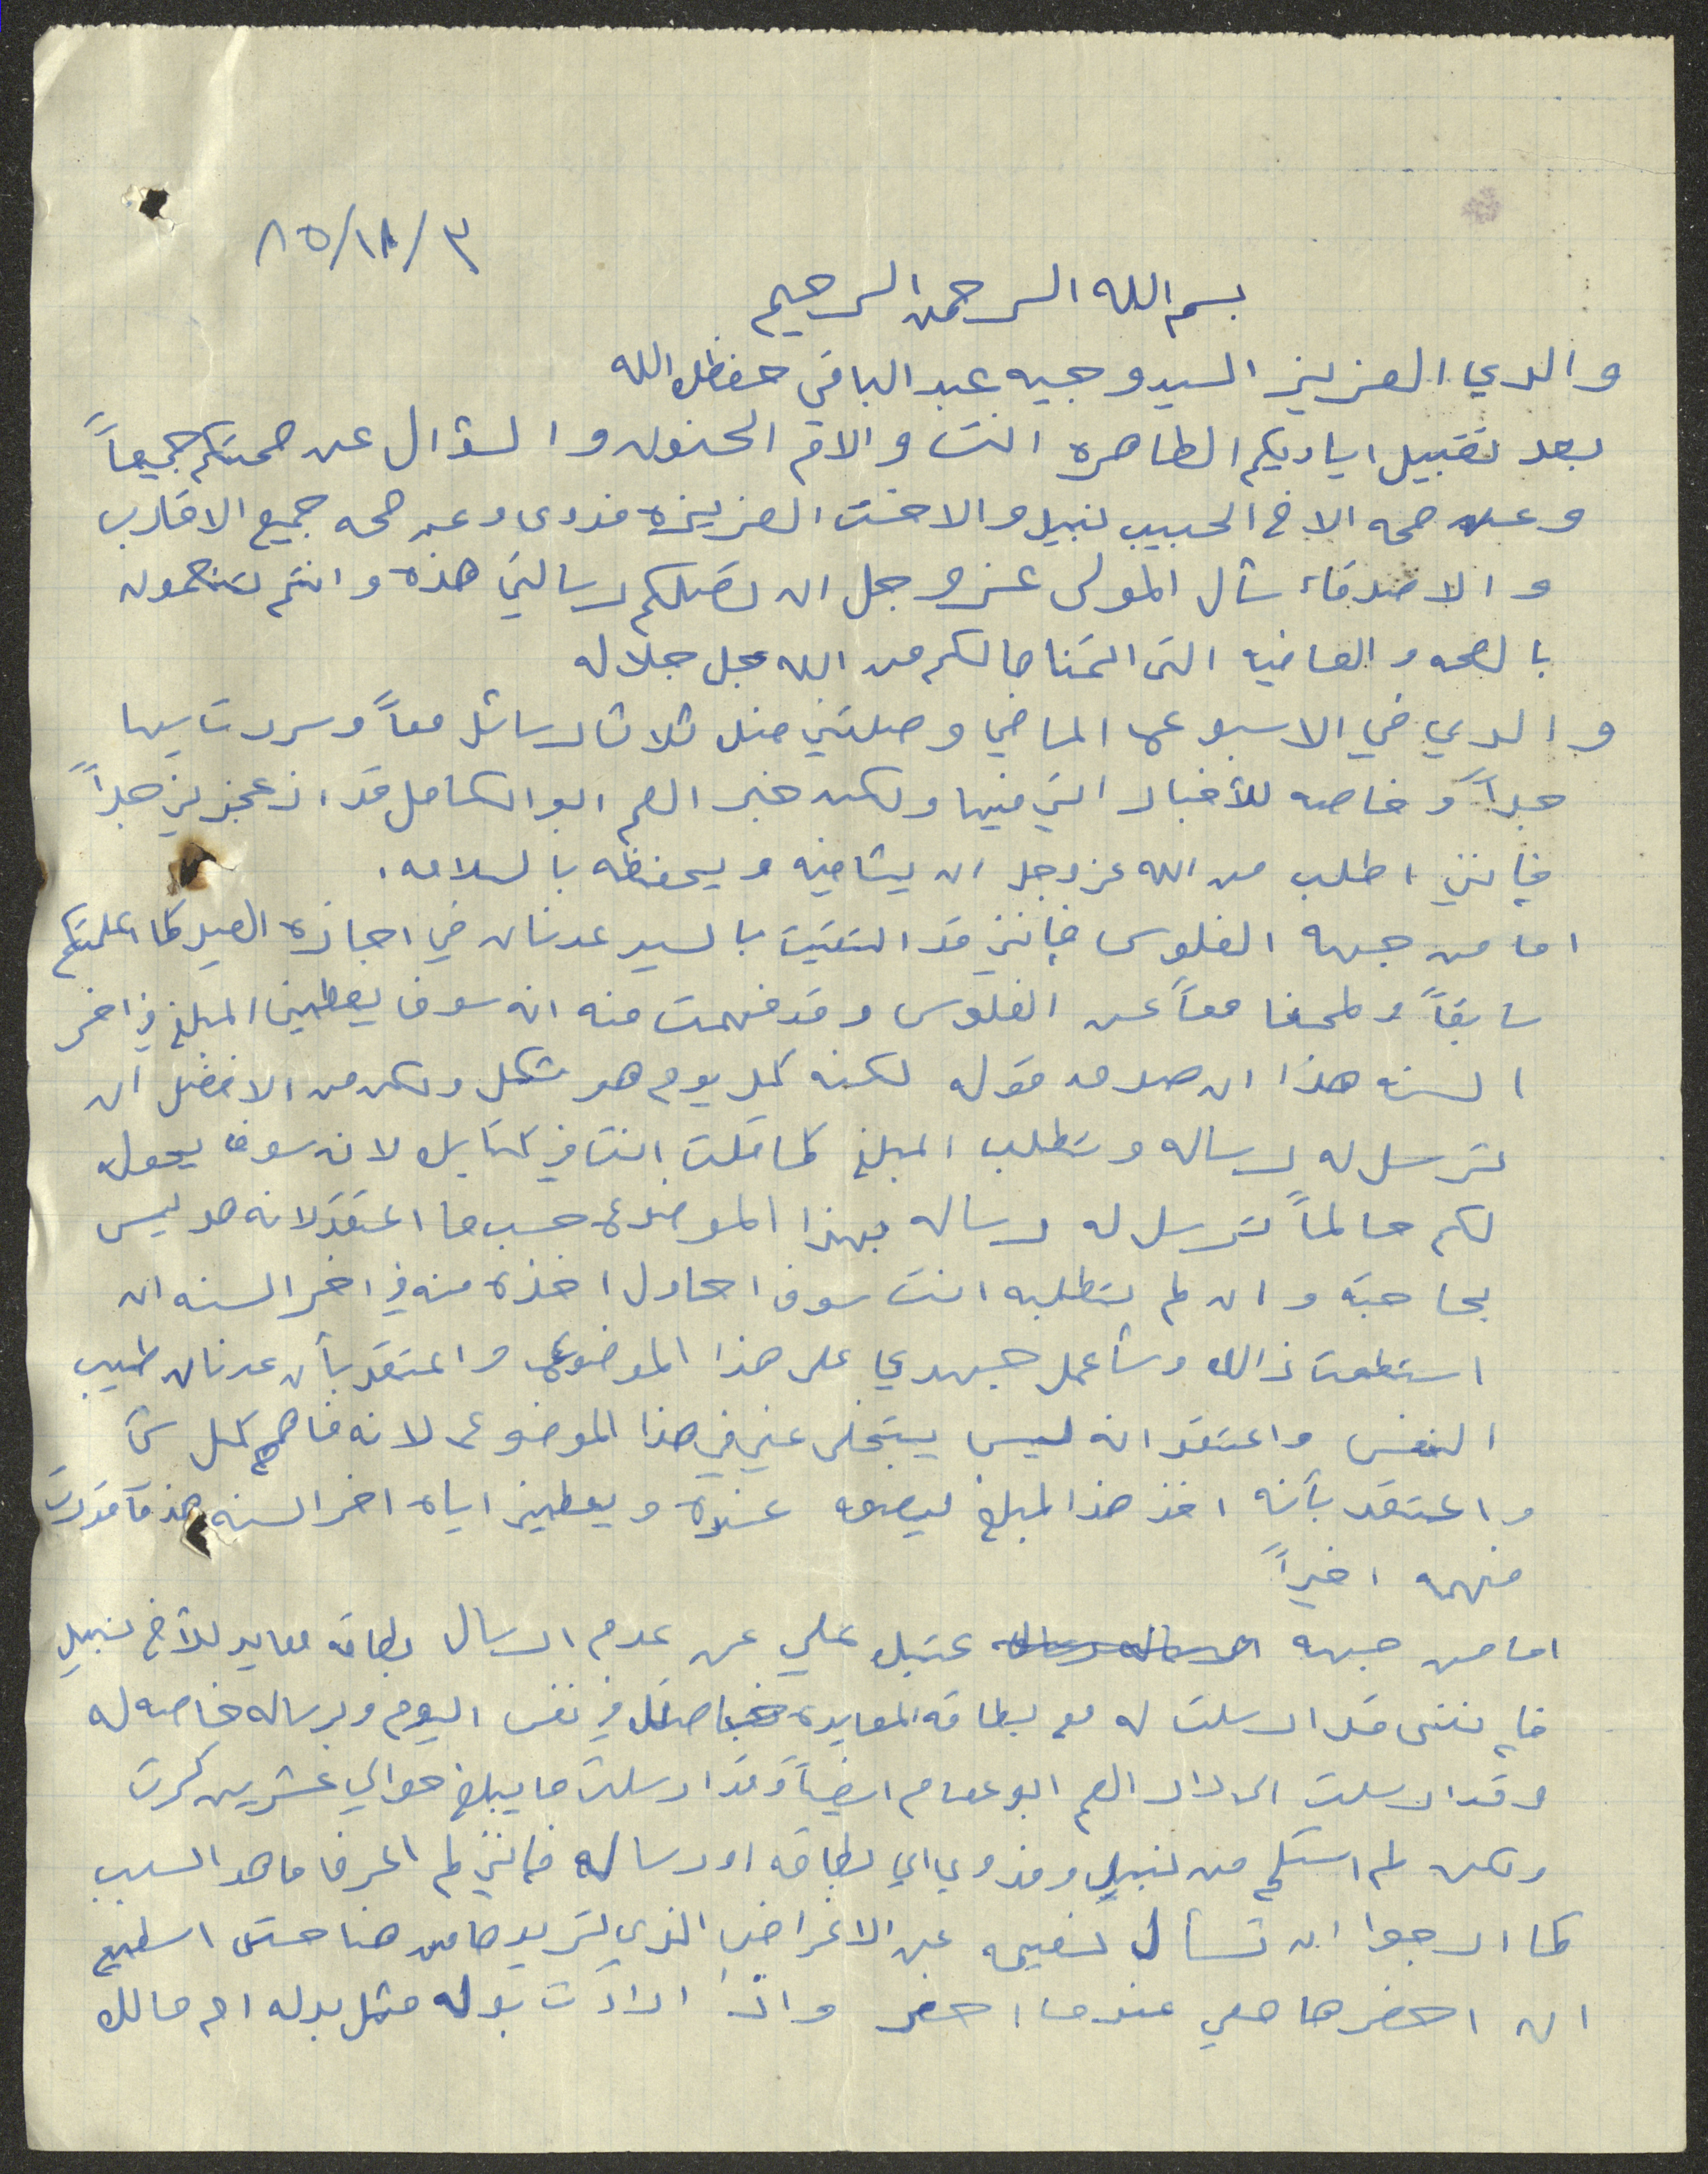 ٨٥/١١/٣
بسم الله الرحمن الرحيم
والدي العزيز السيد وجيه عبد الباقي حفظك الله
بعد تقبيل اياديكم الطاهره انت والام الحنون والسؤال عن صحتكم جميعاً
وعن صحه الاخ الحبيب نبيل والاخت العزيزه فدوى وعن صحه جميع الاقارب
والاصدقاء سأل المولى عز وجل ان تصلكم رسالتي هذه وانتم تنعمون
بالصحه والعافيه التى اتمناها لكم من الله جل جلاله
والدي في الاسبوع الماضي وصلتني منك ثلاث رسائل معاً وسررت بها
جداً وخاصه للأخبار التي فيها ولكن خبر العم ابو الكامل قد ازعجني جداً
فإنني اطلب من الله عز وجل ان يشافيه ويحفظه بالسلامه.
اما من جهه الفلوس فإنني قد التقيت بالسيد عدنان في اجازه العيد كما اعلمتكم
سابقاً ولمحنا معاً عن الفلوس وقد فهمت منه انه سوف يعطيني المبلغ في اخر
السنه هذا ان صدق قوله لكنه كل يوم هو شكل ولكن من الافضل ان
ترسل له رساله وتطلب المبلغ كما قلت انت في كتابك لانه سوف يحوله
لكم حالماً ترسل له رساله بهذا الموضوع حسب ما اعتقد لانه هو ليس
بحاجته وان لم تطلبه انت سوف احاول اخذه منه في اخر السنه ان
استطعت ذالك وسأعمل جهدي على هذا الموضوع واعتقد بأن عدنان طيب
النفس واعتقد انه ليس يتخلى عني في هذا الموضوع لانه فاهم كل شئ
واعتقد بأنه اخذ هذا المبلغ ليضعه عنده ويعطيني اياه اخر السنه هذ ما قدرت
فهمه اخيراً
اما من جهه عتبك علي عن عدم ارسال بطاقه معايد للأخ نبيل
فإنني قد ارسلت له مع بطاقه المعايده خاصتك في نفس اليوم وبرساله خاصه له
وقد ارسلت الى دار العم ابو عصام ايضاً وقد ارسلت ما يبلغ حوالي عشرين كرت
ولكن لم استلم من نبيل وفدوى اي بطاقه او رساله فإنني لم اعرف ما هو السبب
كما ارجوا ان تسأل نعيمه عن الاغراض الذي تريدها من هنا حتى استطيع
ان احضرها معي عندما احضر واذا ارادت بدله مثل بدله ام مالك